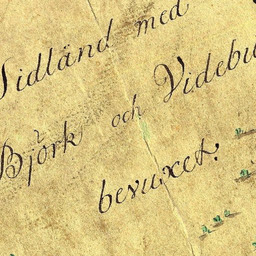 Sidländ med
Björk och Videbu
bevuxet.